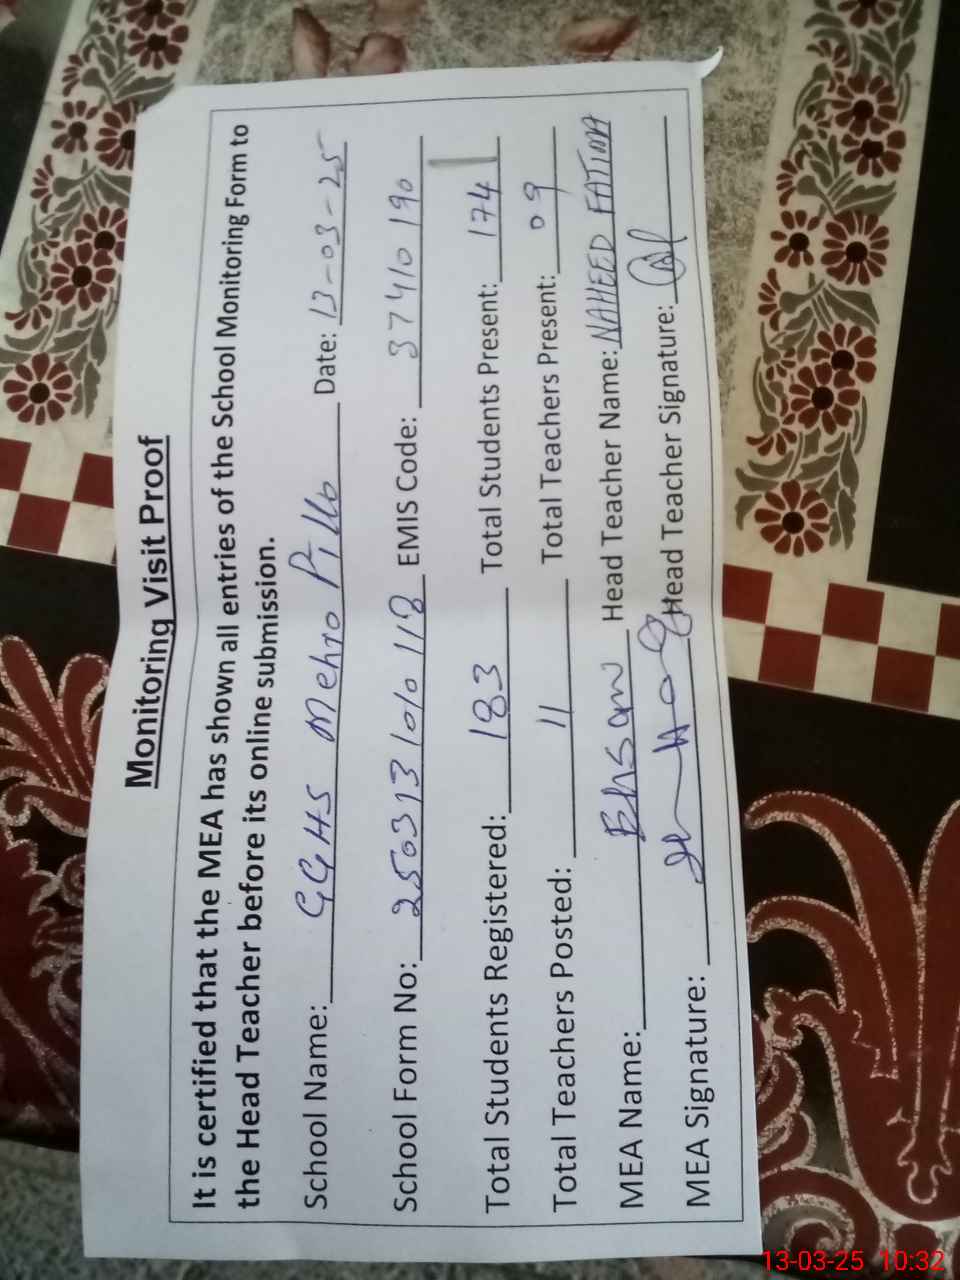 Monitoring Visit Proof
It is certified that the MEA has shown all entries of the School Monitoring Form to
the Head Teacher before its online submission.
School Name: GGHS Mehro Pillo Date: 13-03-25
School Form No: 2503131010118 EMIS Code: 37410190
Total Students Registered: 183 Total Students Present: 174
Total Teachers Posted: 11 Total Teachers Present: 09
MEA Name: Ehsan Head Teacher Name: NAHEED FATIMA
MEA Signature: Head Teacher Signature:
13-03-25 10:32